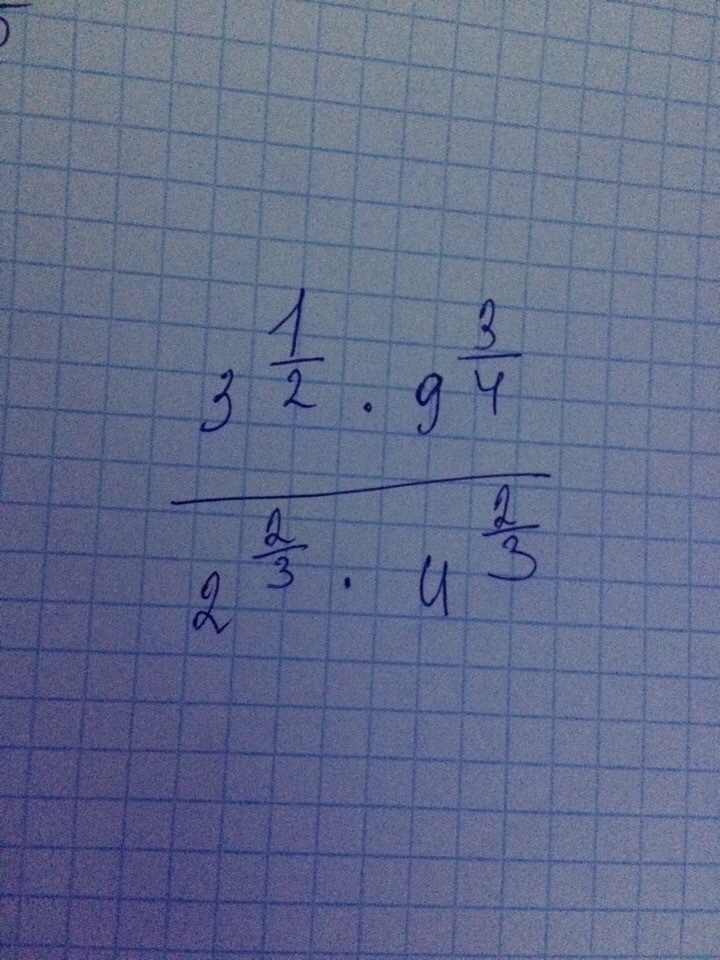 3^{\frac{1}{2}} \cdot 9^{\frac{3}{4}}
2^{\frac{2}{3}} \cdot 4^{\frac{2}{3}}